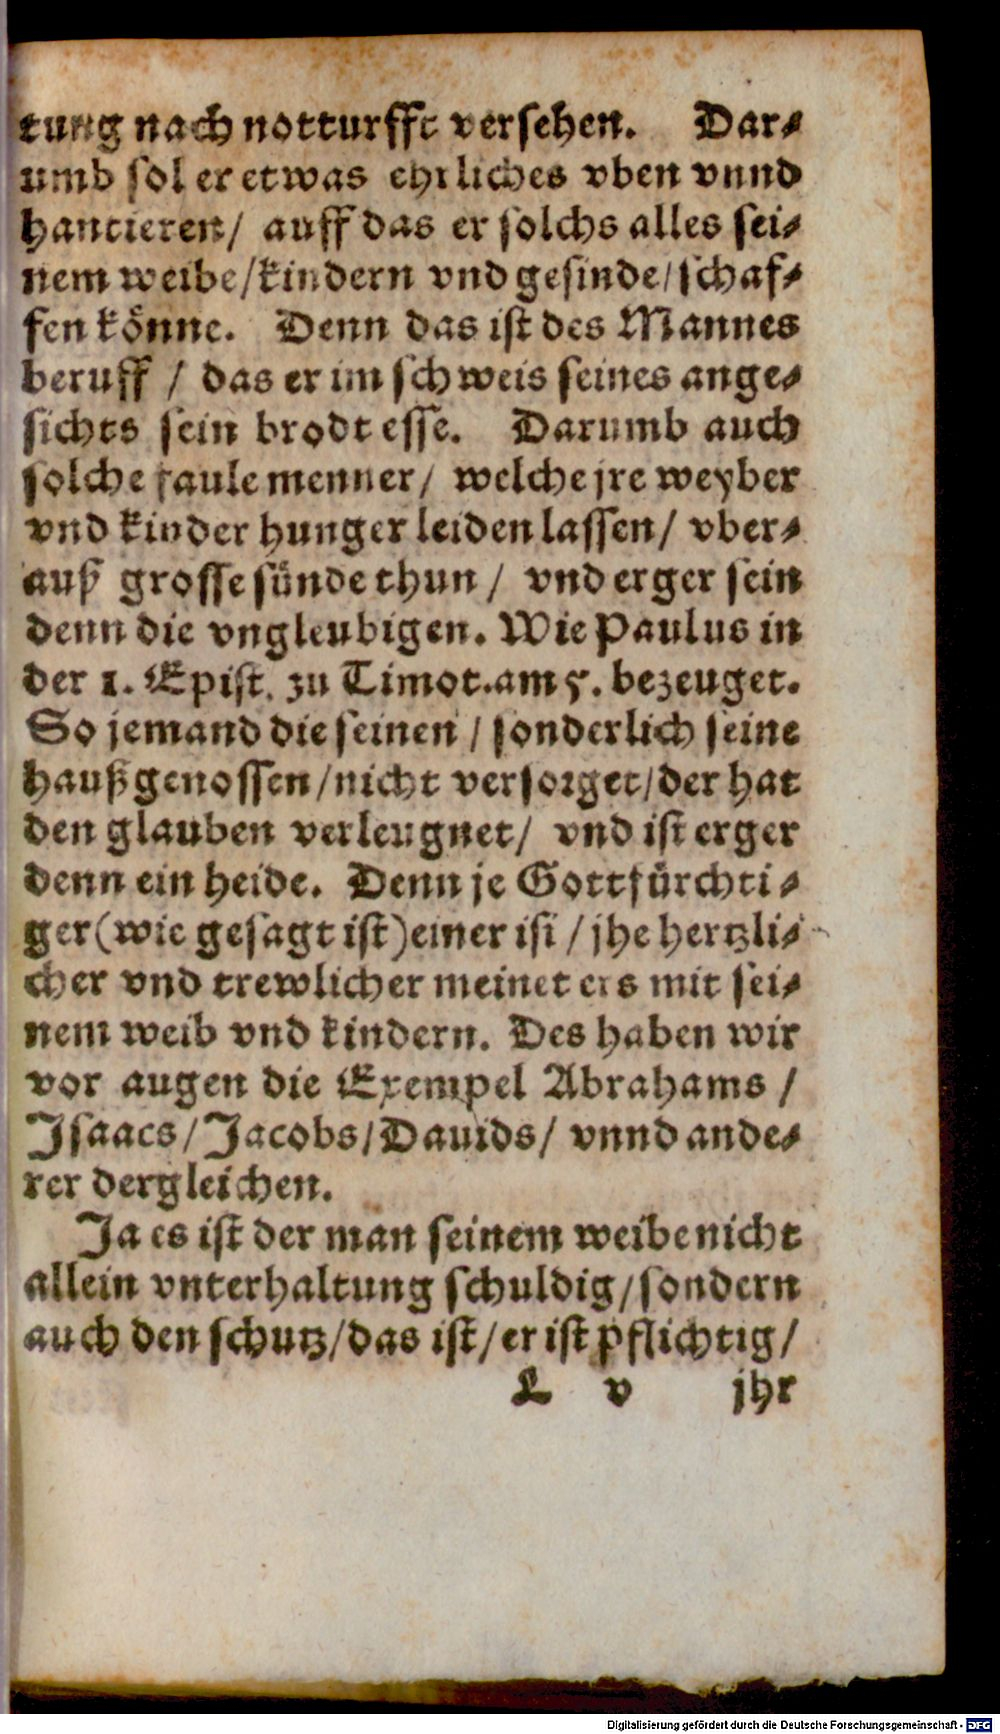 tung nach notturfft versehen. Dar⸗
umb sol er etwas ehrliches vben vnnd
hantieren/ auff das er solchs alles sei⸗
nem weibe/kindern vnd gesinde/schaf⸗
fen könne. Denn das ist des Mannes
beruff / das er im schweis seines ange⸗
sichts sein brodt esse. Darumb auch
solche faule menner/ welche jre weyber
vnd kinder hunger leiden lassen/ vber⸗
auß grosse sünde thun / vnd erger sein
denn die vngleubigen. Wie Paulus in
der 1. Epist. zu Timot. am 5. bezeuget.
So jemand die seinen / sonderlich seine
haußgenossen/nicht versorget/der hat
den glauben verleugnet/ vnd ist erger
denn ein heide. Denn je Gottfürchti⸗
ger (wie gesagt ist) einer ist / jhe hertzli⸗
cher vnd trewlicher meinet ers mit sei⸗
nem weib vnd kindern. Des haben wir
vor augen die Exempel Abrahams /
Isaacs/ Jacobs/ Dauids/ vnnd ande⸗
rer dergleichen.
Ja es ist der man seinem weibe nicht
allein vnterhaltung schuldig/sondern
auch den schutz/das ist/er ist pflichtig/
L v jhr
Digitalisierung gefördert durch die Deutsche Forschungsgemeinschaft - DFG